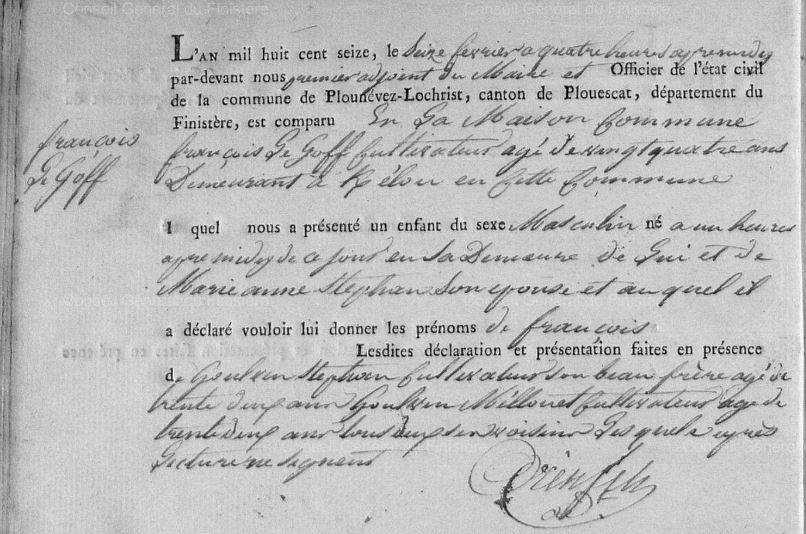 Conseil Général du Finistère
L'AN mil huit cent seize, le seize fevrier a quatre heures apres midy
par-devant nous premier adjoint du Maire et Officier de l'état civil
de la commune de Plounévez-Lochrist, canton de Plouescat, département du
Finistère, est comparu En La Maison Commune
françois Le Goff Cultivateur agé de vingt quatre ans
Demeurant a en Cette Commune
françois
Le Goff
l quel nous a présenté un enfant du sexe Masculin né a un heures
apres midy de ce jour en sa Demeure de Lui et de
Marie anne Stephan Son epouse et auquel il
a déclaré vouloir lui donner les prénoms de françois
Lesdites déclaration et présentation faites en présence
de Goulven Stephan Cultivateur son beau frère agé de
trente deux ans Goulven Cultivateur age de
trente deux ans tous deux ses voisins Lesquels apres
Lecture ne signent